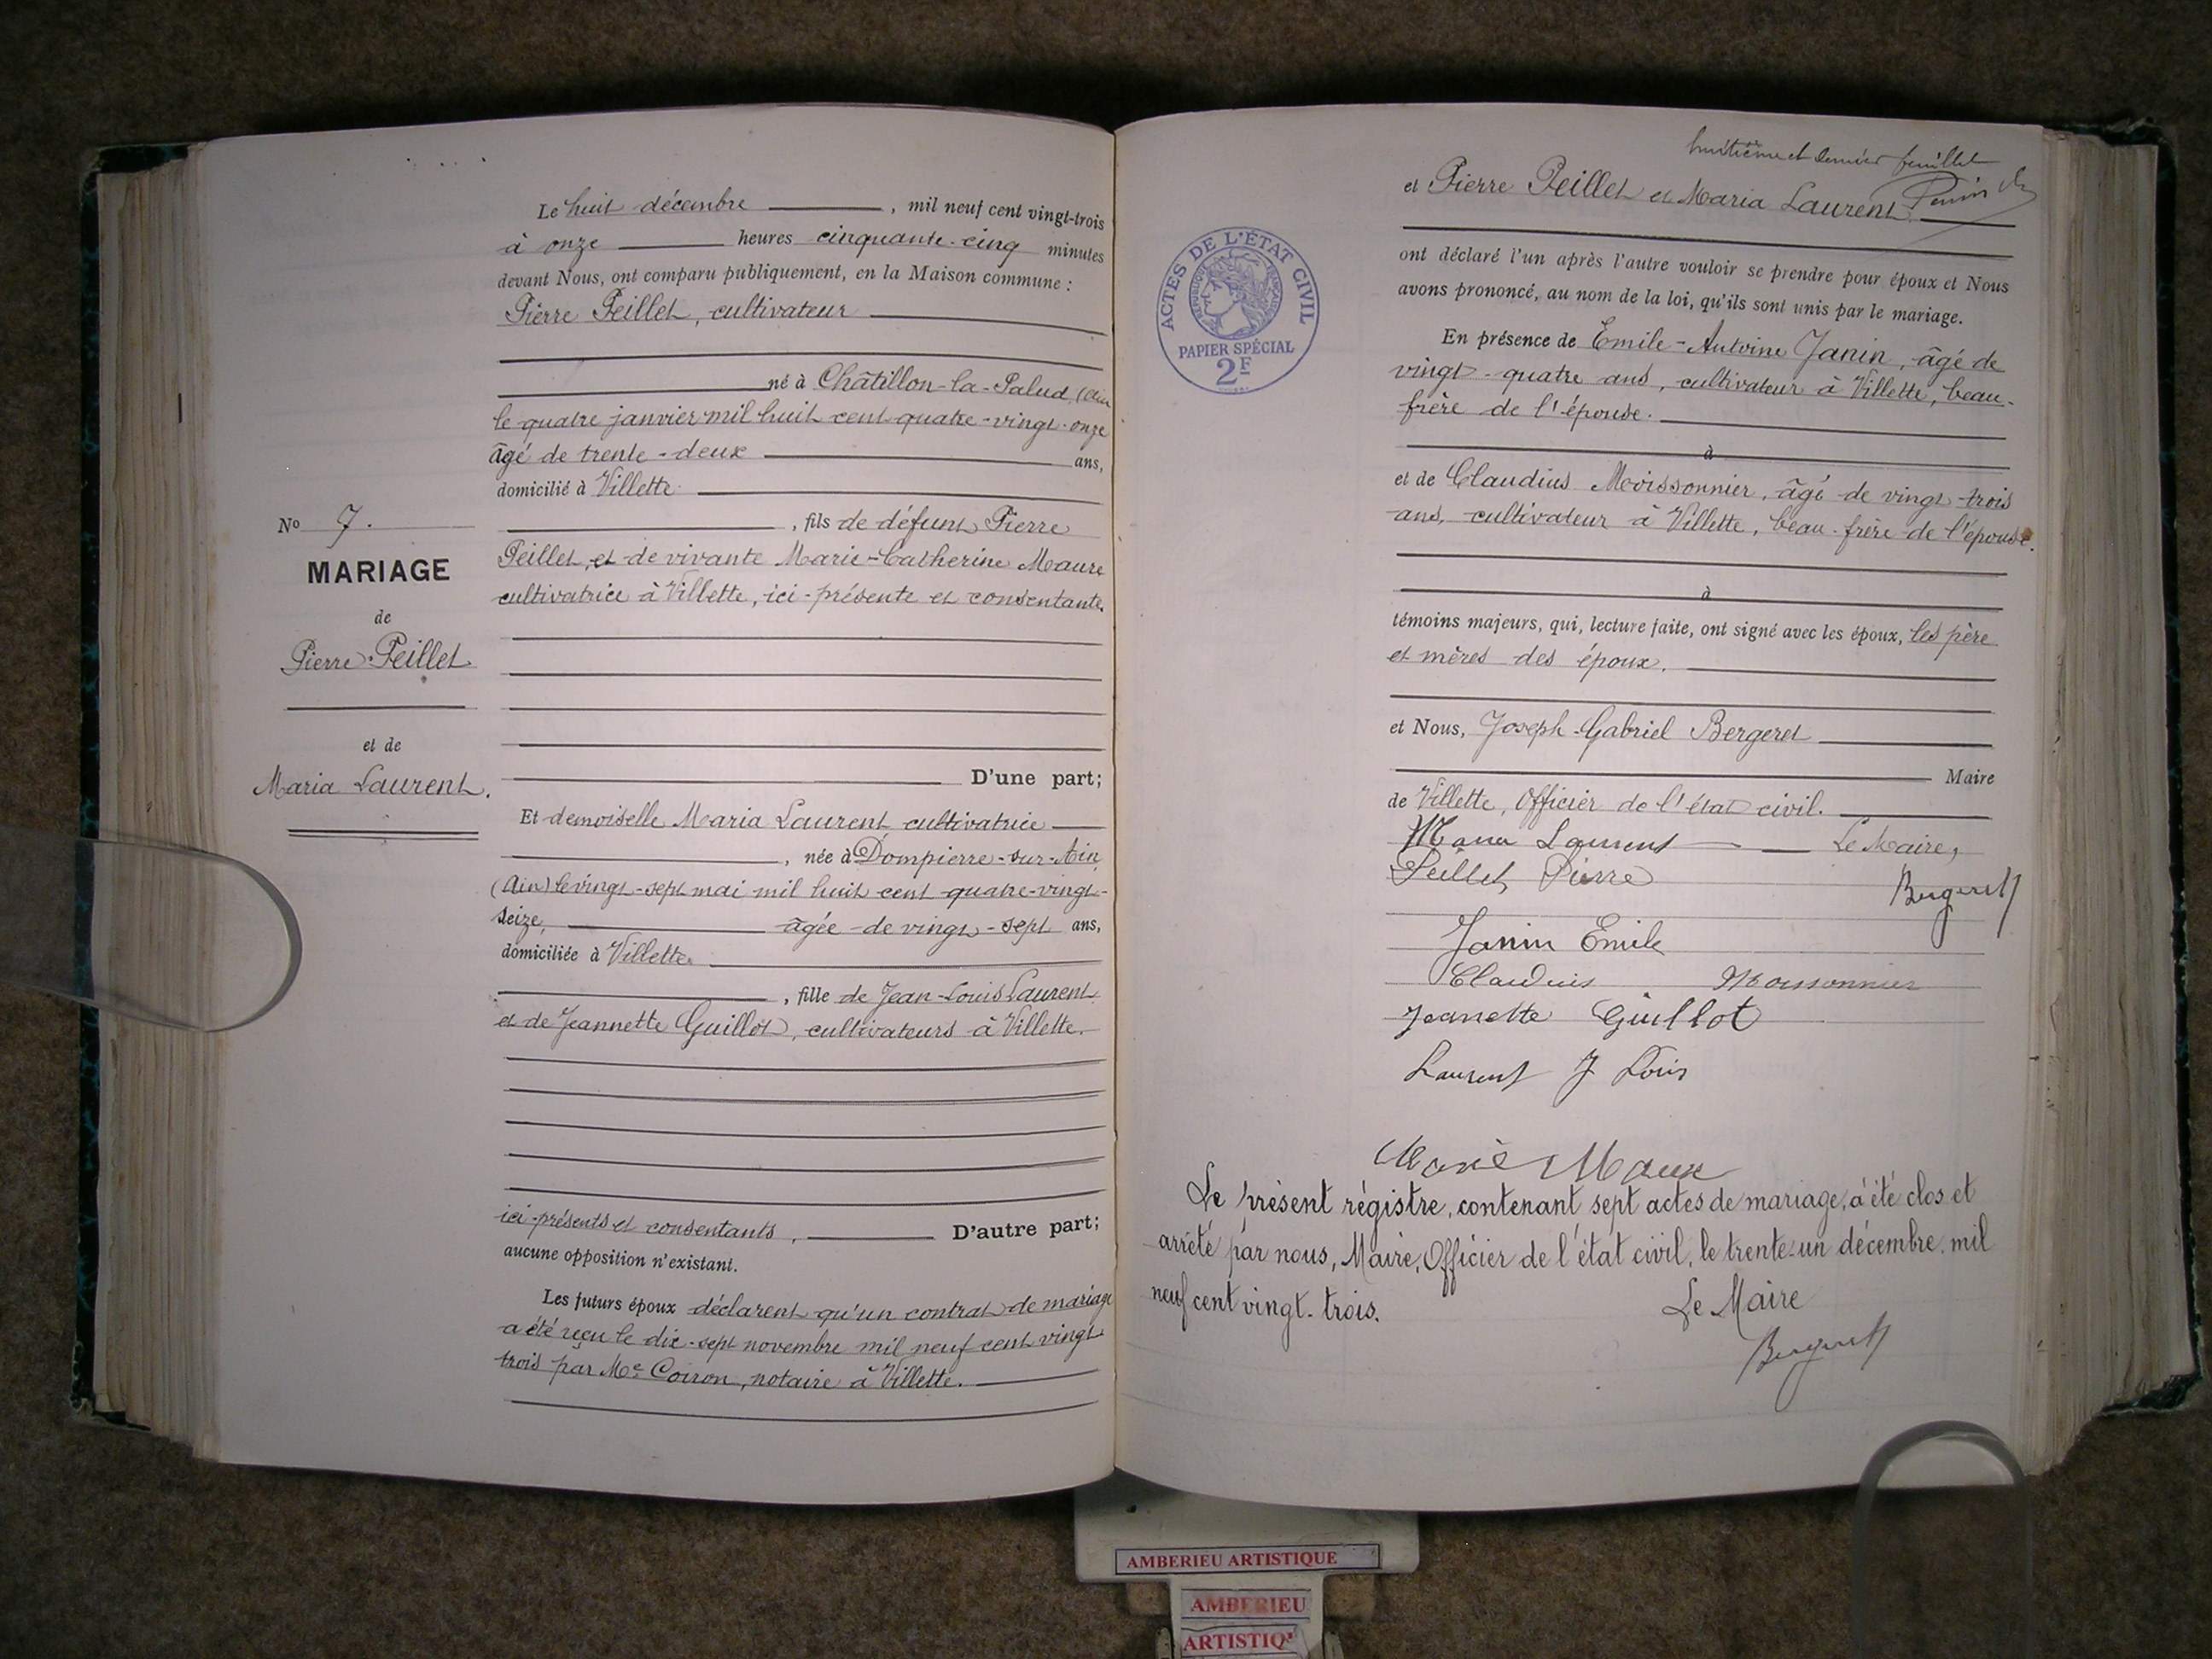 Le huit décembre, mil neuf cent vingt-trois
à onze heures cinquante-cinq minutes
devant Nous, ont comparu publiquement, en la Maison commune :
Pierre Peillet, cultivateur
né à Châtillon-la-Palud, (Ain
le quatre janvier mil huit cent quatre-vingt-onze
âgé de trente-deux ans,
domicilié à Villette
, fils de défunt Pierre
Peillet, et de vivante Marie-Catherine Maure
cultivatrice à Villette, ici-présente et consentante.
D'une part;
Et demoiselle Maria Laurent cultivatrice
, née à Dompierre-sur-Ain
(Ain) le vingt-sept mai mil huit cent quatre-vingt-
seize, âgée de vingt-sept ans,
domiciliée à Villette.
, fille de Jean-Louis Laurent
et de Jeannette Guillot, cultivateurs à Villette.
ici-présents et consentants, D'autre part;
aucune opposition n'existant.
Les futurs époux déclarent qu'un contrat de mariage
a été reçu le dix-sept novembre mil neuf cent vingt
trois par Me Coiron, notaire à Villette.
No 7.
MARIAGE
de
Pierre Peillet.
et de
Maria Laurent.
huitième et dernier feuillet
et Pierre Peillet et Maria Laurent
ont déclaré l'un après l'autre vouloir se prendre pour époux et Nous
avons prononcé, au nom de la loi, qu'ils sont unis par le mariage.
En présence de Emile-Antoine Janin, âgé de
vingt-quatre ans, cultivateur à Villette, beau-
frère de l'épouse.
à
et de Claudius Moissonnier, âgé de vingt-trois
ans, cultivateur à Villette, beau-frère de l'épouse.
à
témoins majeurs, qui, lecture faite, ont signé avec les époux, les père
et mères des époux.
et Nous, Joseph-Gabriel Bergeret
Maire
de Villette, Officier de l'état civil.
Maria Laurent Le Maire,
Peillet Pierre
Bergeret
Janin Emile
Claudius Moissonnier
Jeanette Guillot
Laurent J Louis
Marie Maure
Le présent régistre, contenant sept actes de mariage, a été clos et
arrêté par nous, Maire, Officier de l'état civil, le trente-un décembre, mil
neuf cent vingt-trois.
Le Maire
Bergeret
ACTES DE L'ÉTAT CIVIL
RÉPUBLIQUE FRANÇAISE
PAPIER SPÉCIAL
2F
AMBERIEU ARTISTIQUE
AMBERIEU
ARTISTIQ